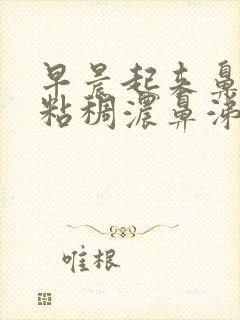 早晨起来鼻
粘稠浓鼻涕
唯根